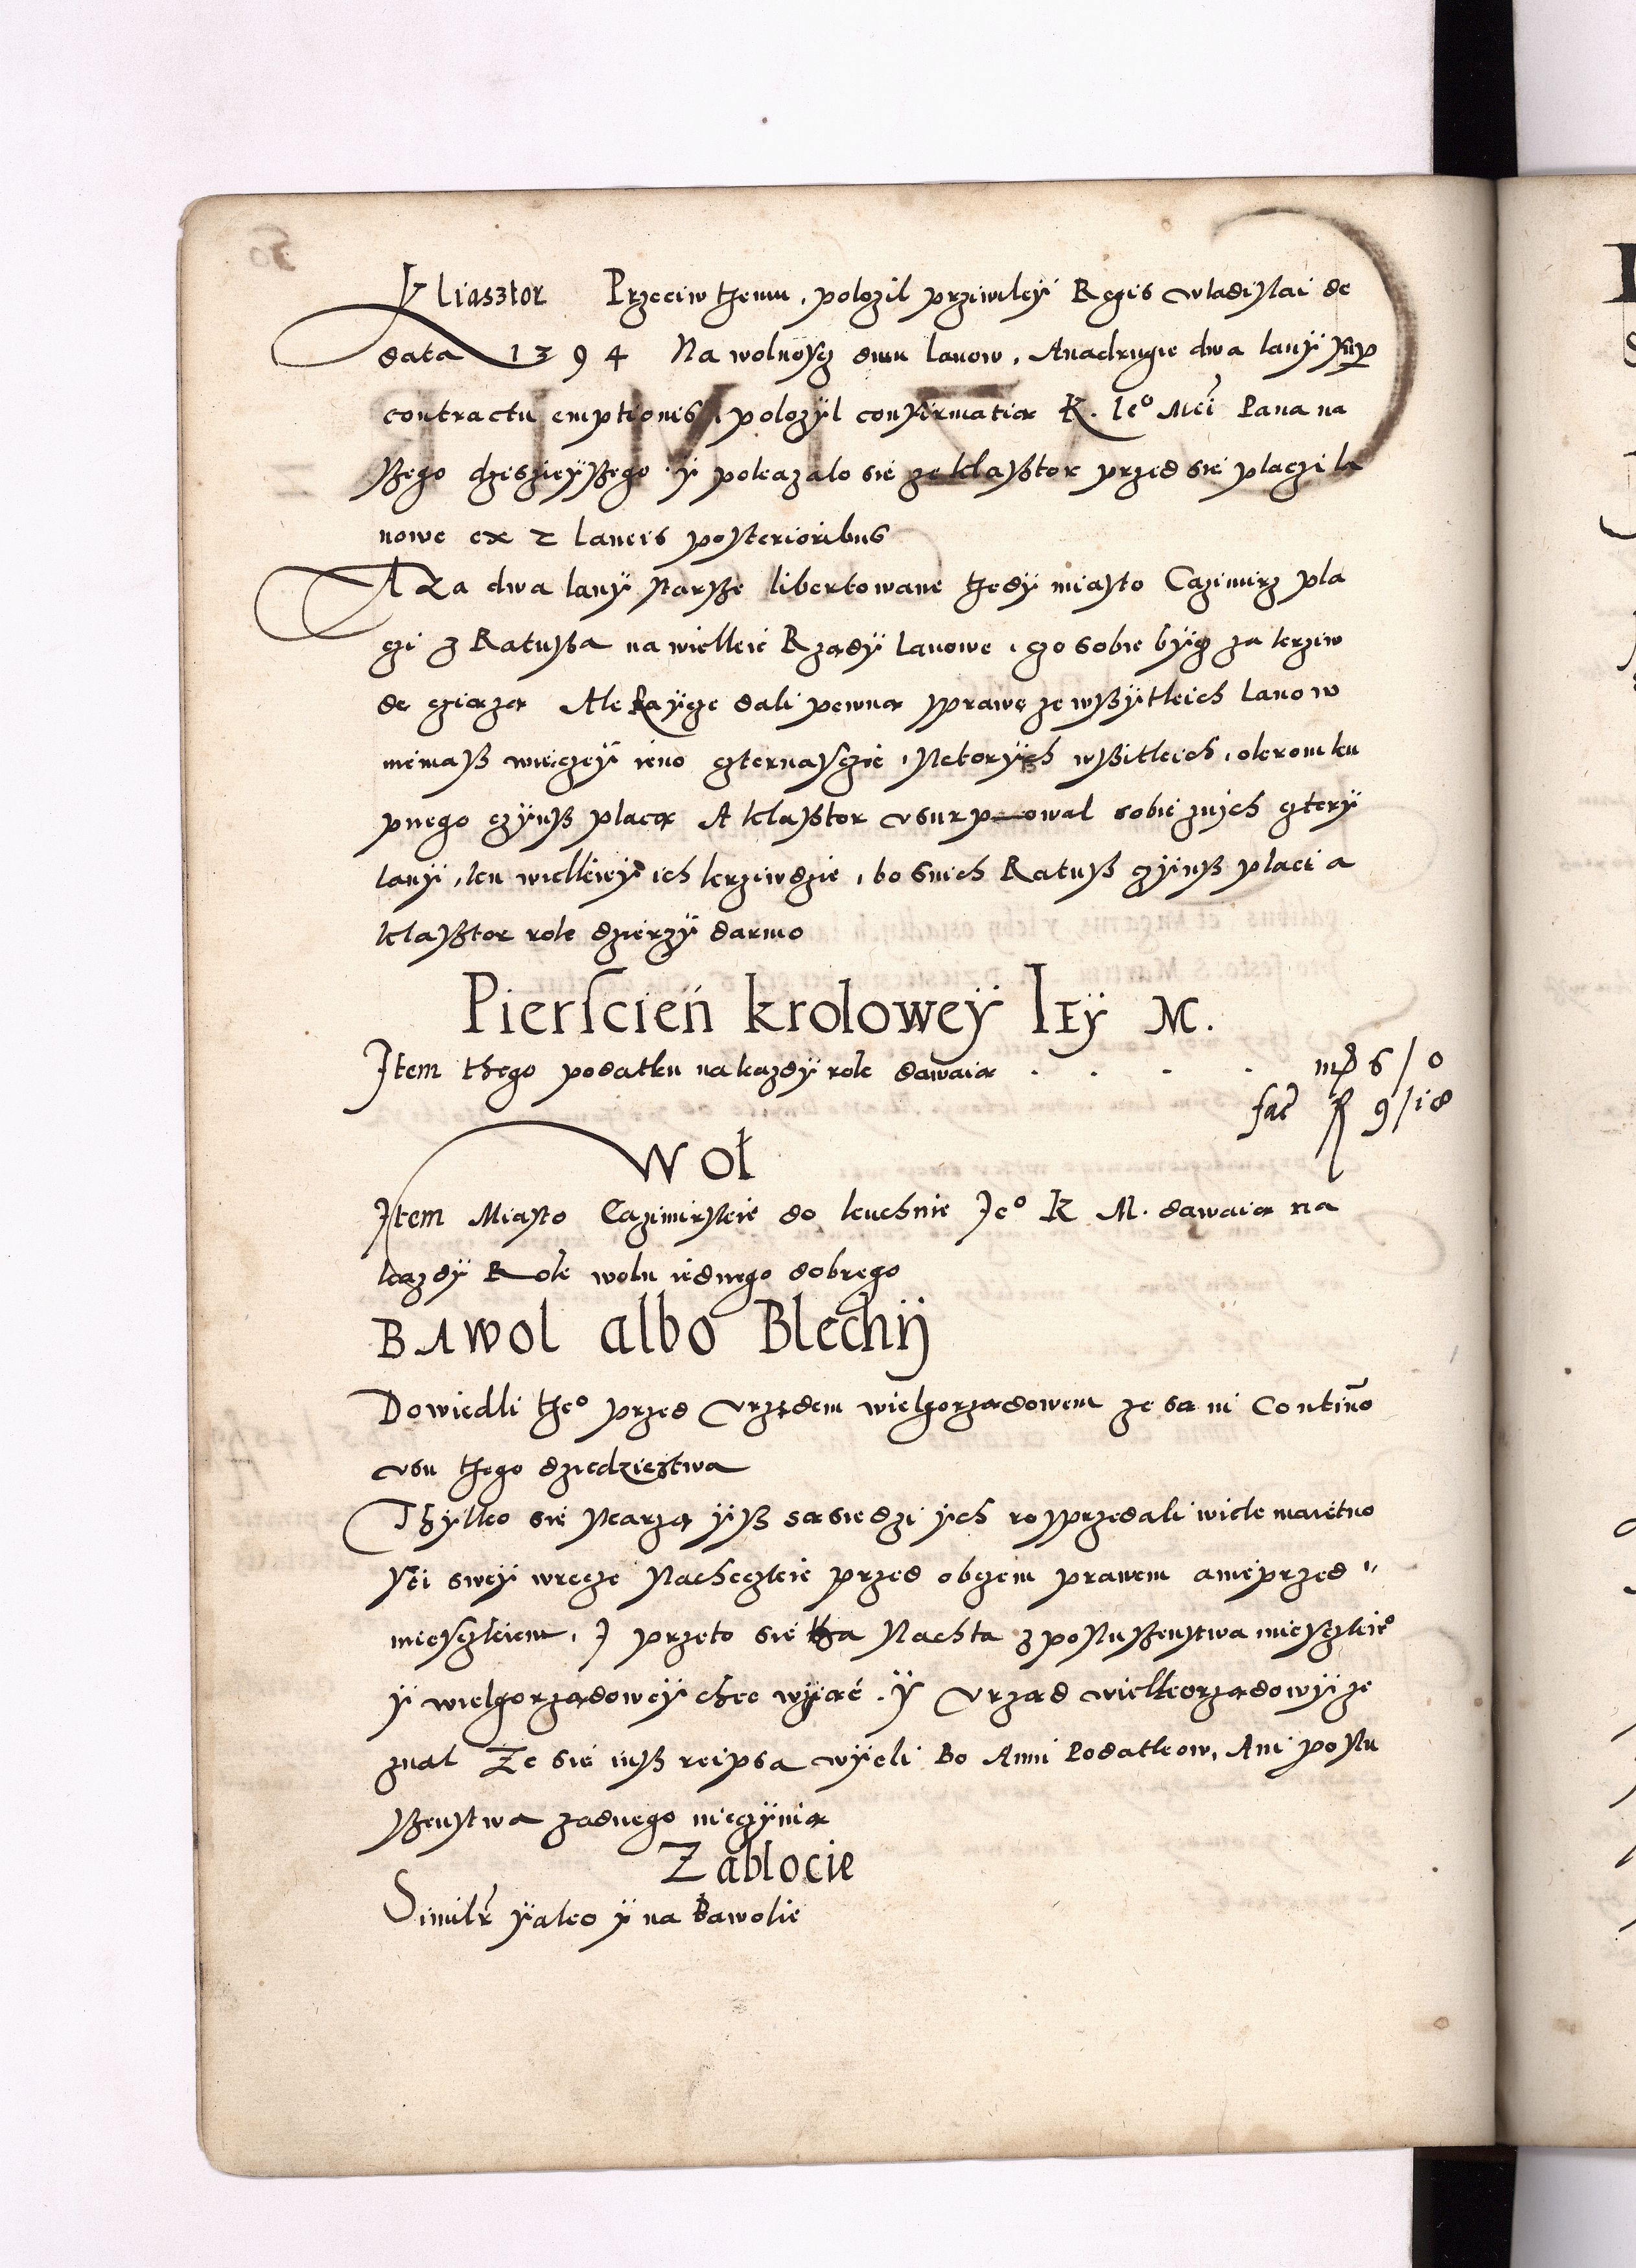 Kliasztor Przeciw themu, polozil prziwileÿ Regis Wladislai de
data 1394 Na wolnoscz dwu lanow, Anadrugie dwa lanÿ sup
contractu emptionis, polozÿl confirmatią K. Ieº Mci Pana na
ssego dziszieÿssego ÿ pokazalo sie ze klasstor przed sie placzi la
nowe ex 2 laneis posterioribus
A Za dwa lanÿ starsse libertowane thedÿ miasto Cazimirz pla
czi z Ratussa na wielkie Rządÿ Lanowe, czo sobie bÿcz za krziw
de czierza Ale Rayce dali pewną sprawę ze wssÿtkich Lanow
niemass wieczeÿ ieno czternascie, sktorÿch wssitkich, okrom ku
pnego czÿnss placą A klasstor vsurpowal sobie znich czterÿ
lanÿ, ku wielkieÿ ich krziwdzie, bo snich Ratuss czÿnss placi a
klasstor role dzierzÿ darmo
Pierscień krolowey IEÿ M.
Item thego podatku na kazdÿ rok dawaią . . . . mr 6/0
fac fl 9/18
Woł
Item Miasto Cazimirskie do kuchnie Ieº K M. dawaią na
kazdÿ Rok wolu iednego dobrego
BAWOL albo Blechÿ
Dowiedli theº przed Vrzędem wielgorządowem ze są in Continuo
vsu thego dziedzicztwa
Thÿlko sie skarzą ÿss sąsiedzi ÿch rossprzedali wiele maiętno
sci sweÿ wręcze slacheczkie przed obczem prawem a nie przed
mieysczkiem, I przeto sie tha slachta z poslussenstwa mieysczkieº
ÿ wielgorządoweÿ chce wÿiąć. Y Vrząd wielkorządowÿ ze
znal Ze sie iuss reipsa wÿieli Bo Anni Podatkow, Ani poslu
ssenstwa zadnego nieczÿnią
Zablocie
Similr ÿako ÿ na Bawolie